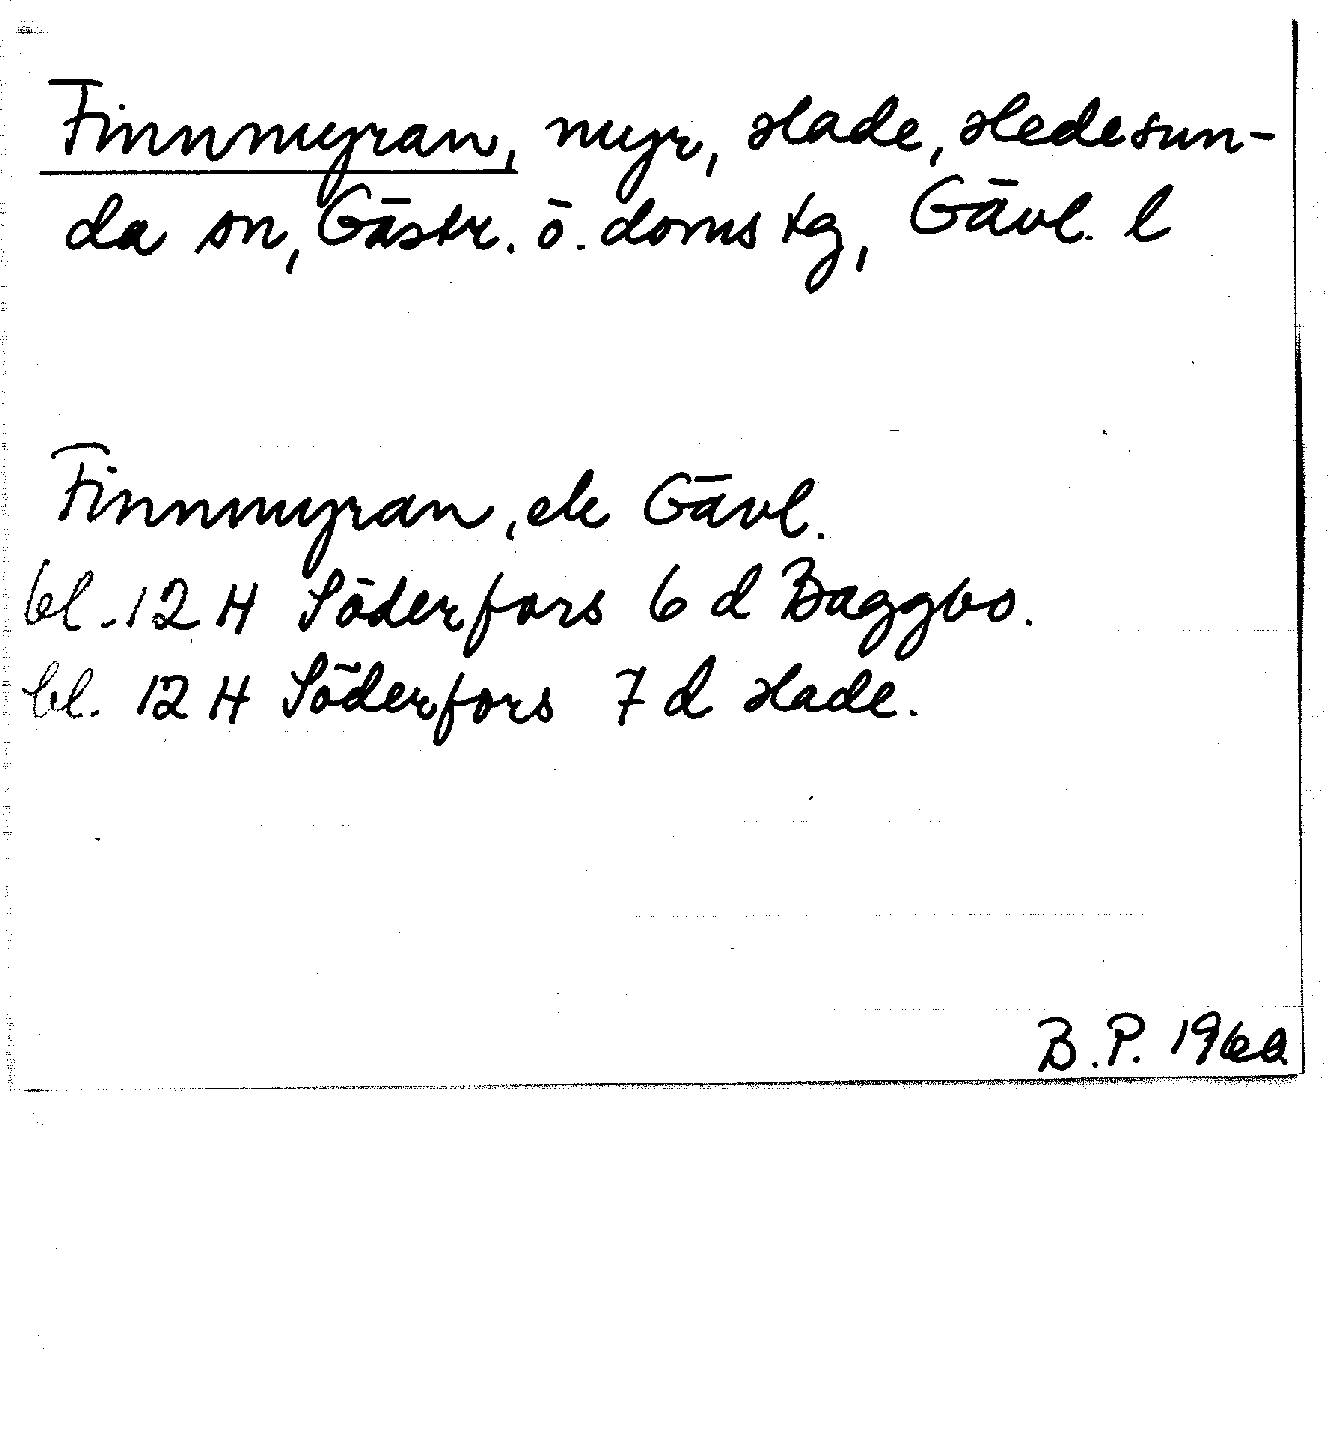 Finnmyran, myr, Hade, Hedesun-
da sn, Gästr. ö. doms tg, Gävl. l
Finnmyran, ek Gävl.
bl. 12 H Söderfors 6 d Baggbo.
bl. 12 H Söderfors 7 d Hade.
B.P. 1962